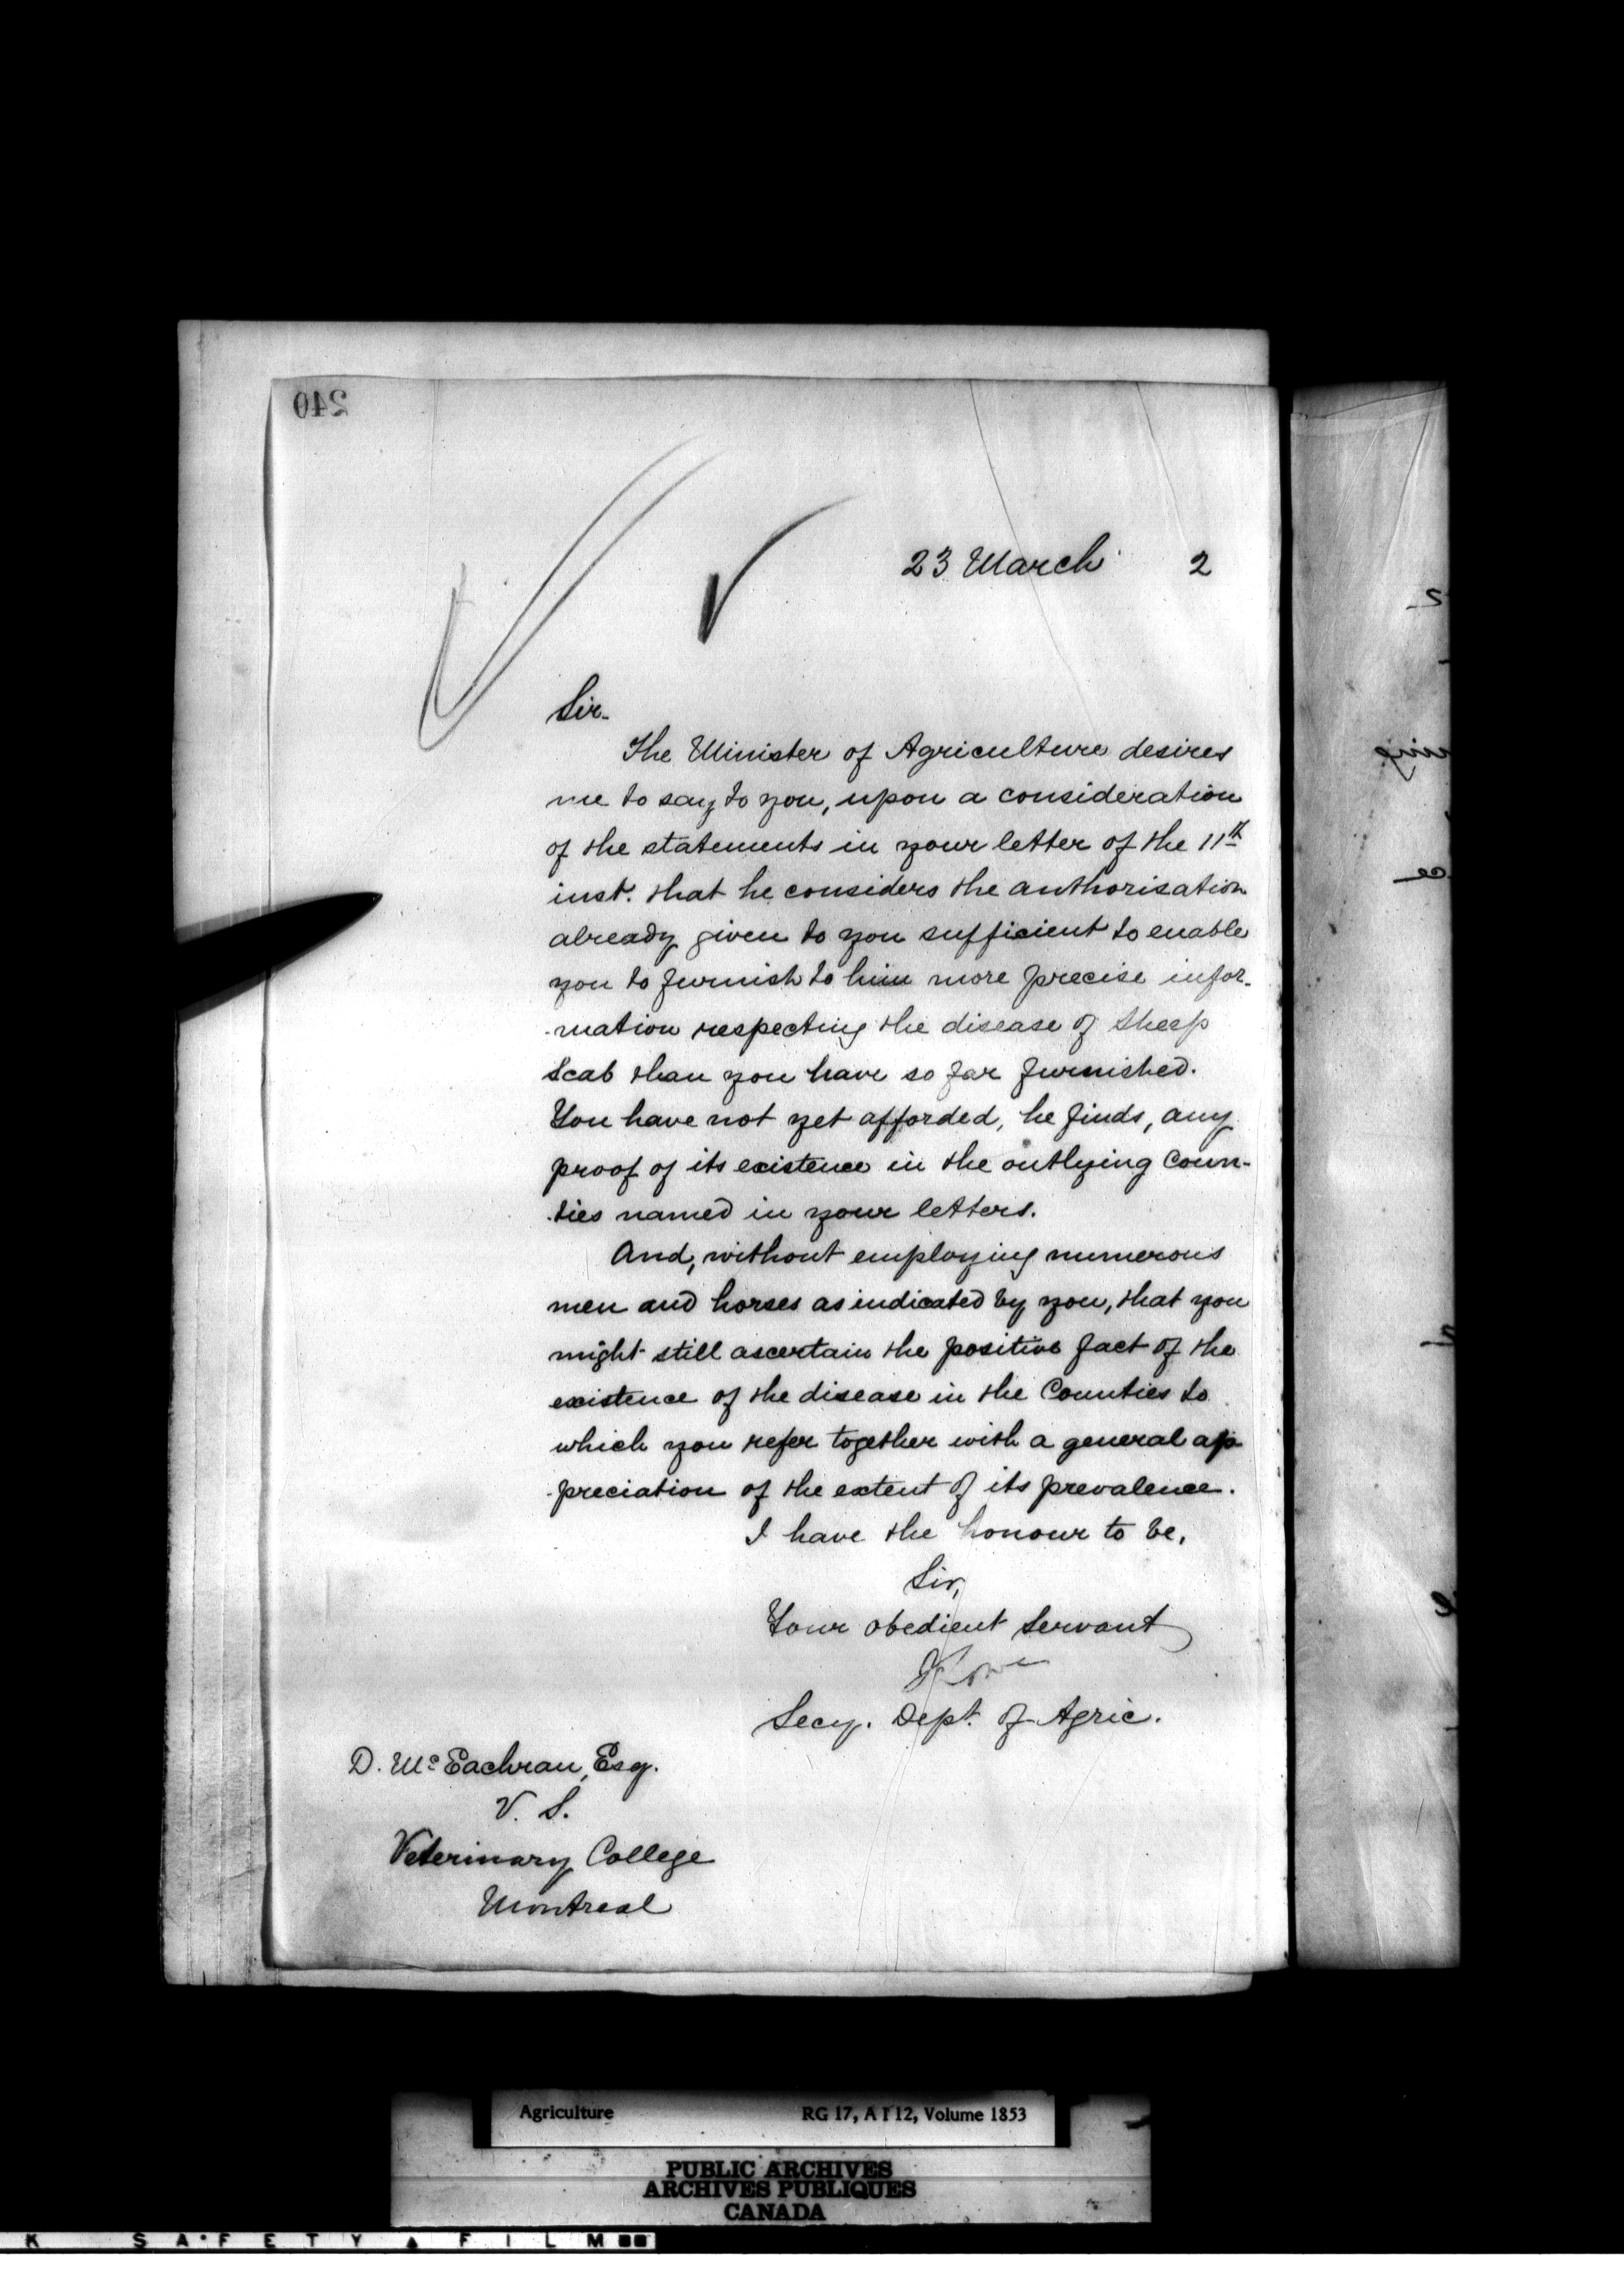 240
23 March 2
Sir.
The Minister of Agriculture desires
me to say to you, upon a consideration
of the statements in your letter of the 11th
inst. that he considers the authorisation
already given to you sufficient to enable
you to furnish to him more precise infor-
-mation respecting the disease of Sheep
Scab than you have so far furnished.
You have not yet afforded, he finds, any
proof of its existence in the outlying Coun-
-ties named in your letters.
And, without employing numerous
men and horses as indicated by you, that you
might still ascertain the positive fact of the
existence of the disease in the Counties to
which you refer together with a general ap
-preciation of the extent of its prevalence.
I have the honour to be,
Sir,
Your obedient Servant
Secy. Dept. of Agric.
D. McEachran, Esq.
V. S.
Veterinary College
Montreal
Agriculture RG 17, A I 12, Volume 1853
PUBLIC ARCHIVES
ARCHIVES PUBLIQUES
CANADA
K SAFETY FILM